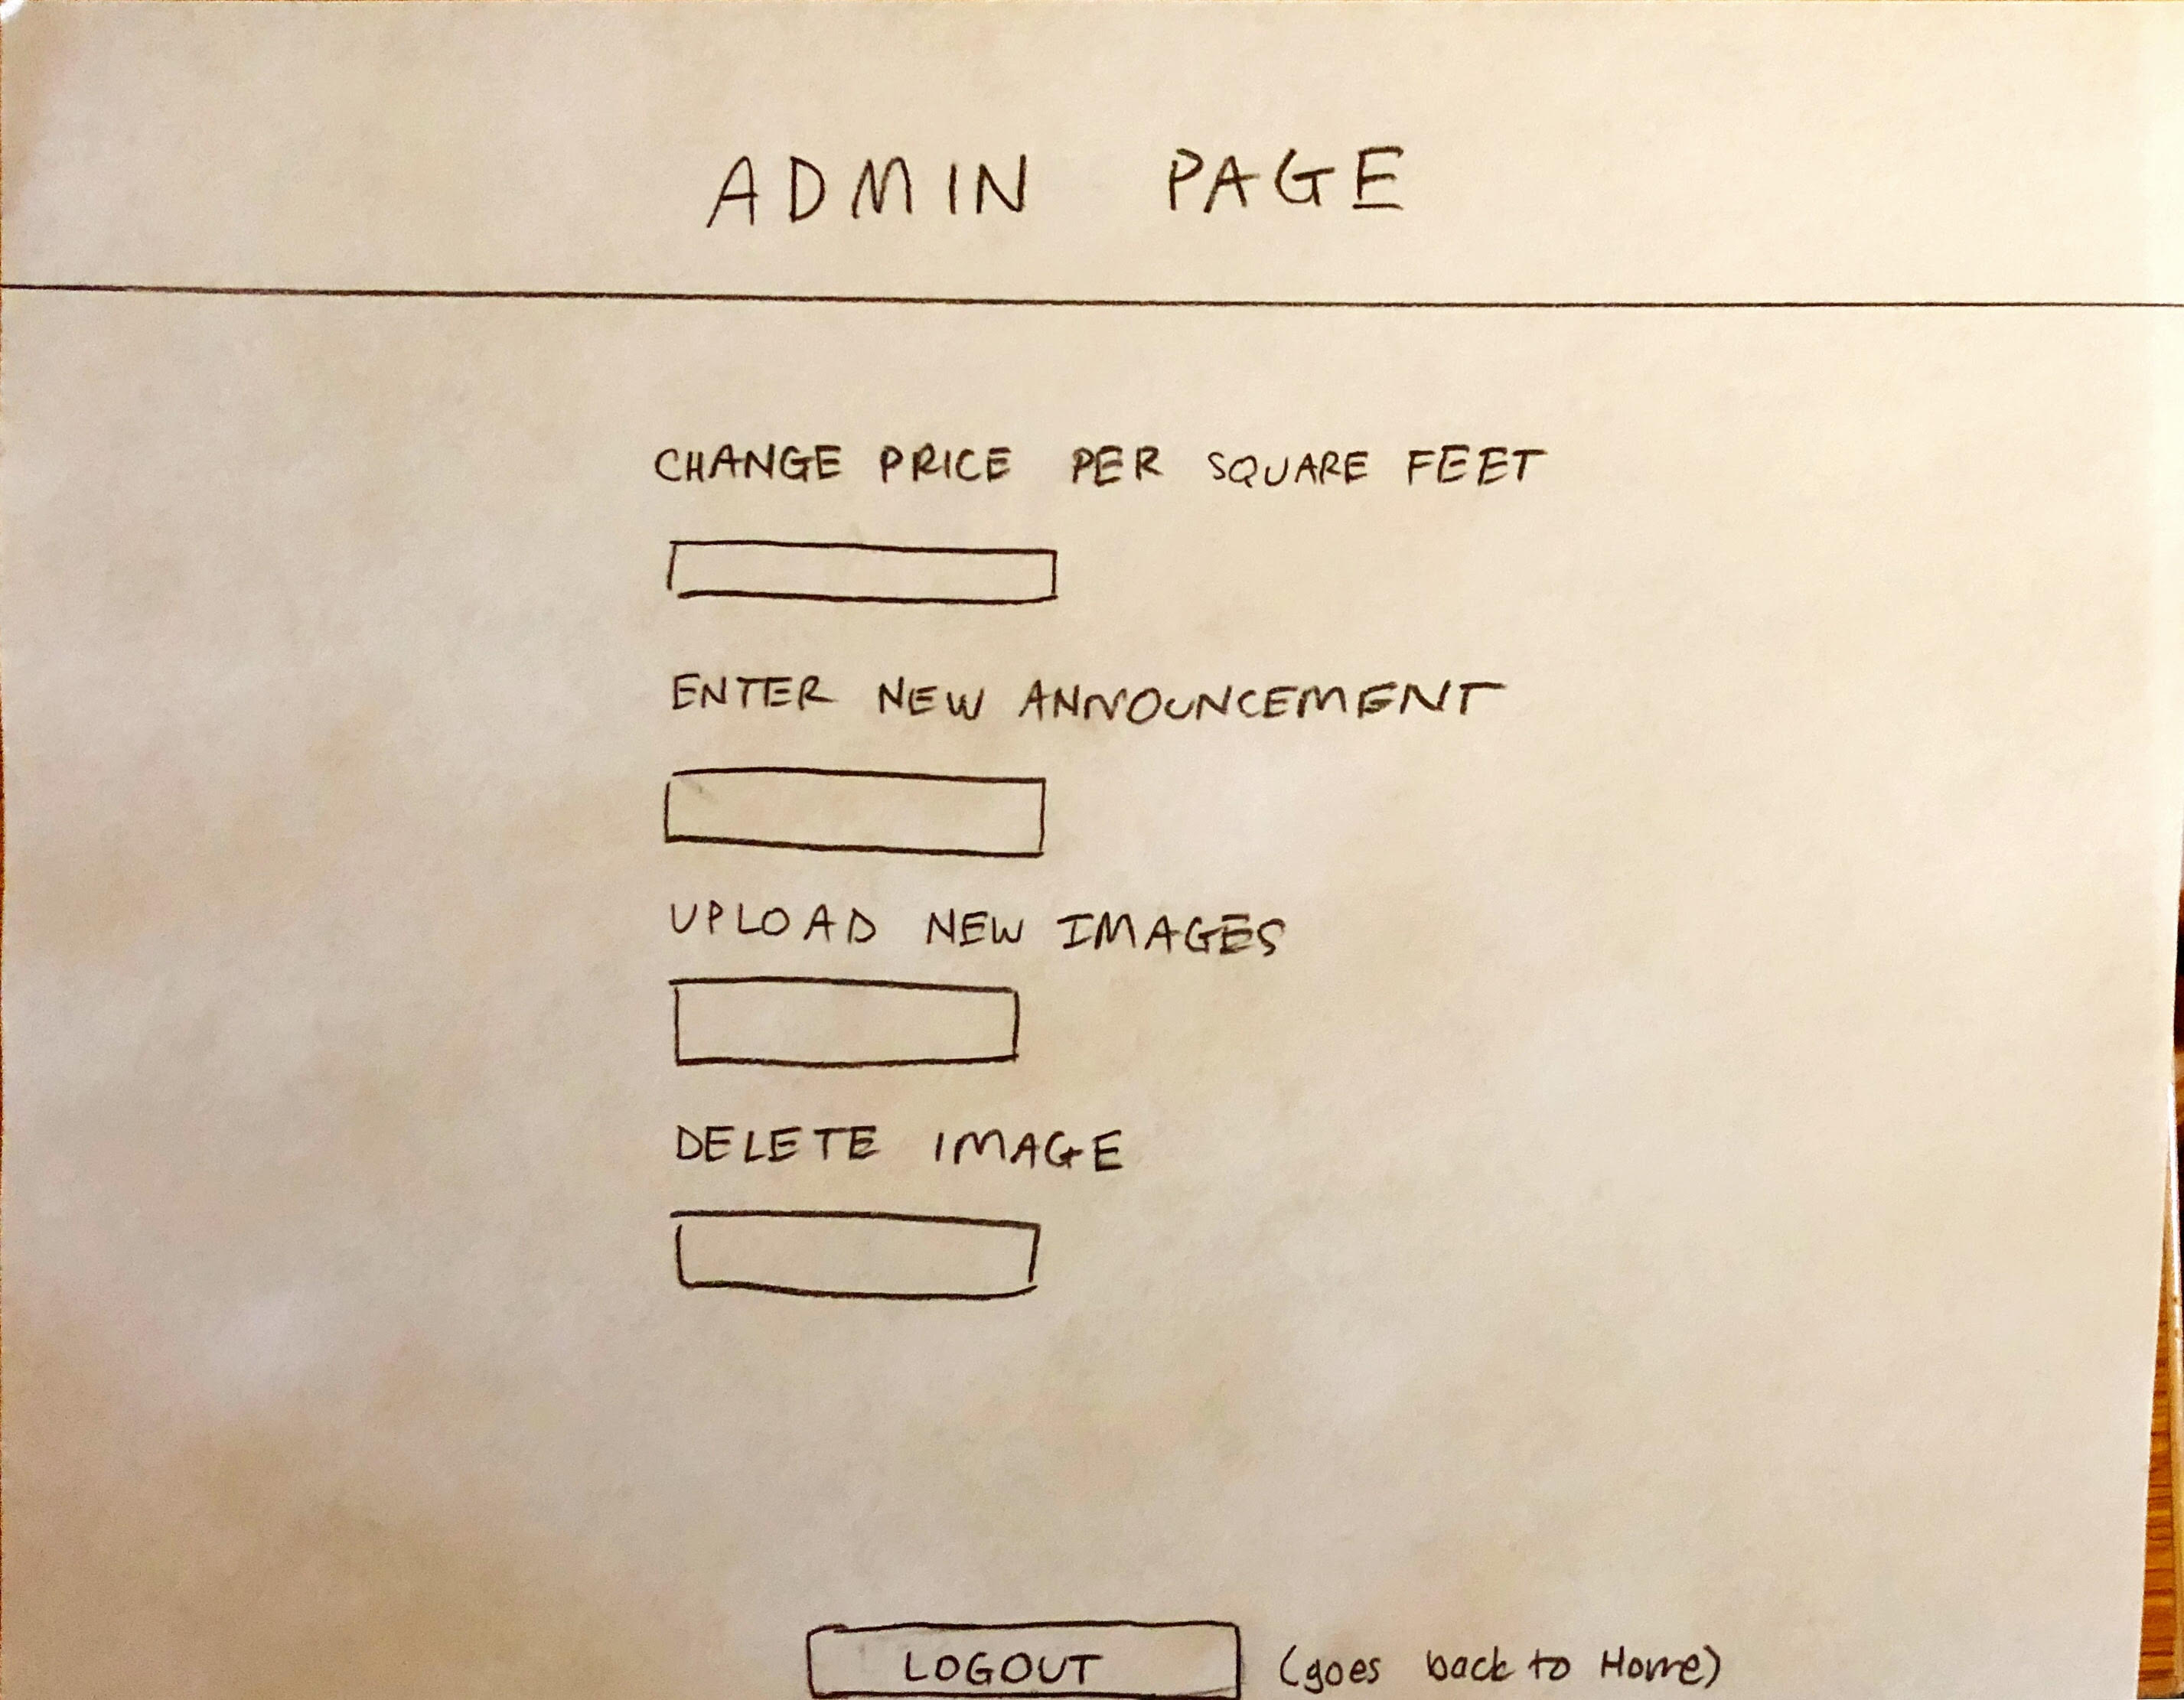 ADMIN PAGE
CHANGE PRICE PER SQUARE FEET
ENTER NEW ANNOUNCEMENT
UPLOAD NEW IMAGES
DELETE IMAGE
LOGOUT (goes back to Home)